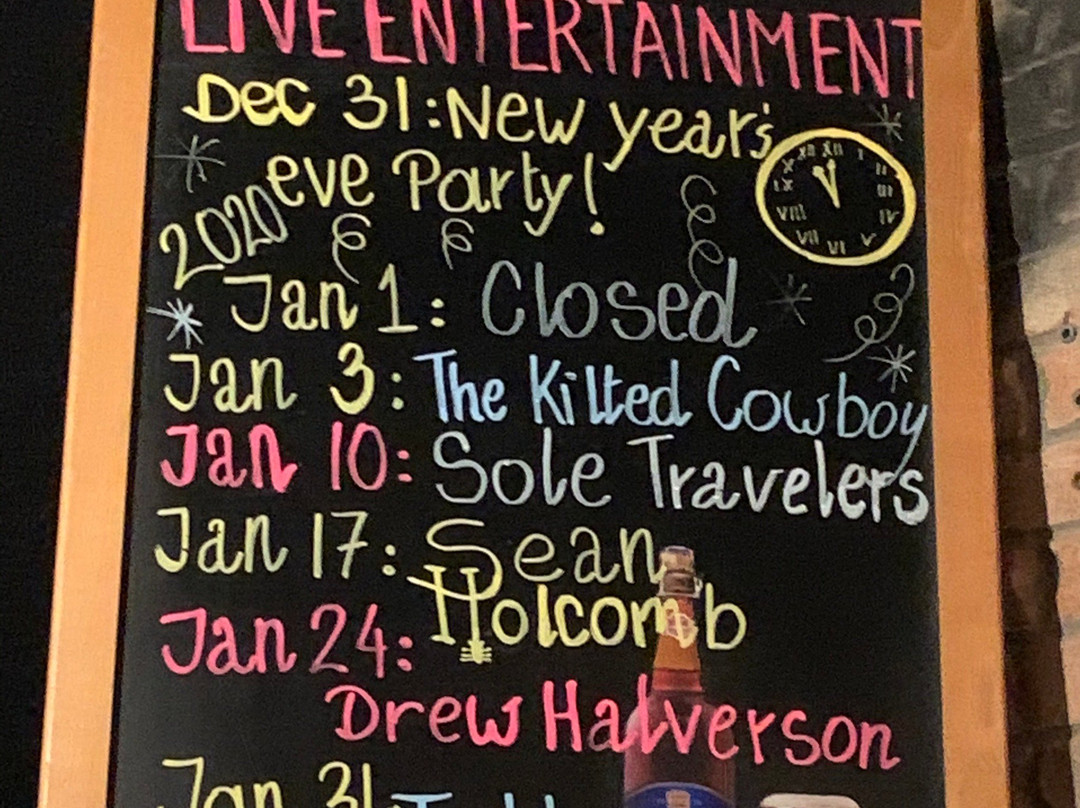 LIVE ENTERTAINMENT
Dec 31: New year's
eve Party!
2020
Jan 1: Closed
Jan 3: The Kilted Cowboy
Jan 10: Sole Travelers
Jan 17: Sean
Holcomb
Jan 24:
Drew Halverson
Jan 31
XII I II III IV V VI VII VIII IX X XI